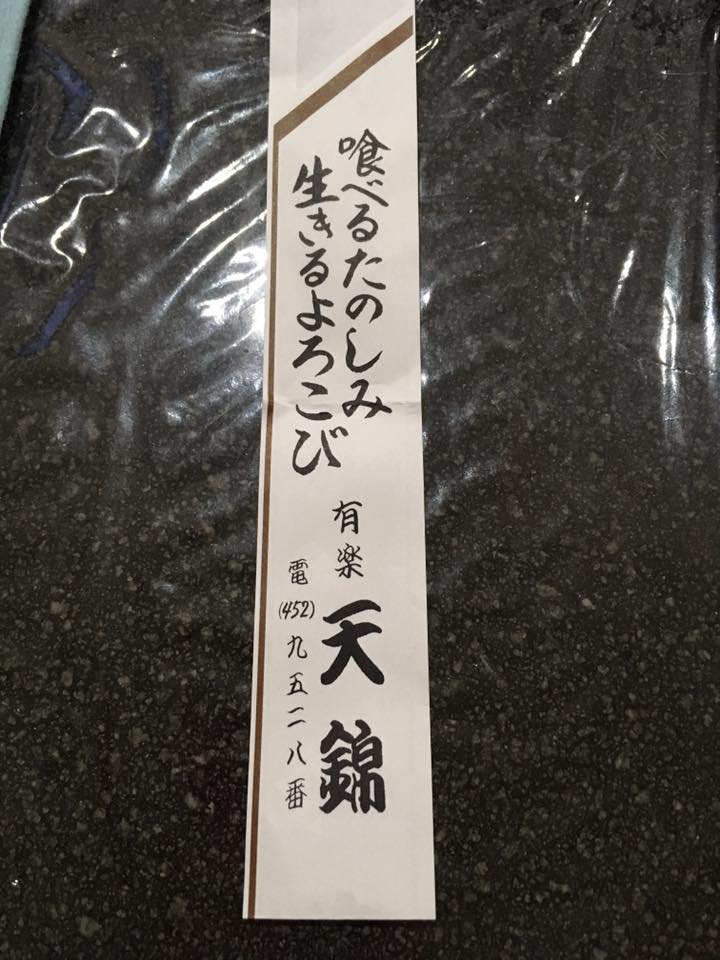 喰べるたのしみ
生きるよろこび
有楽
天錦
電(452)九五二八番